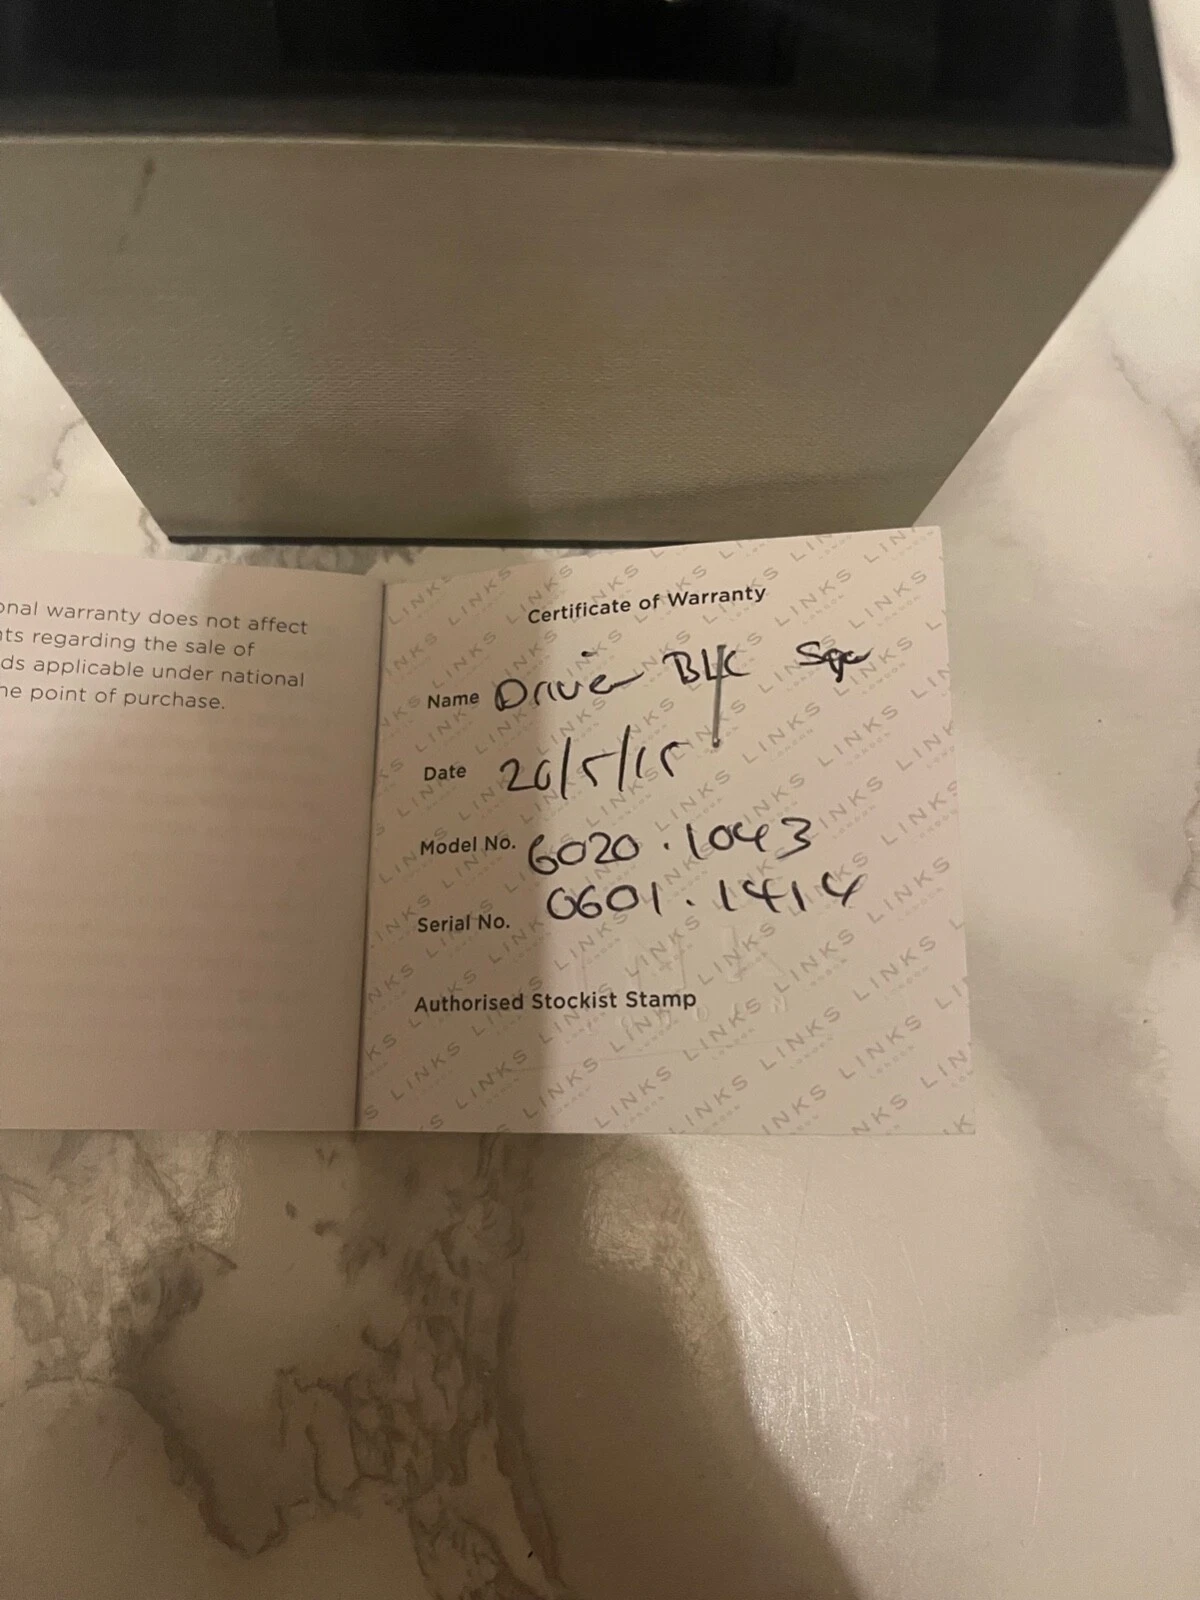 onal warranty does not affect
nts regarding the sale of
ds applicable under national
he point of purchase.
Certificate of Warranty
Name Driver BLK Sqe
Date 20/5/15
Model No. 6020.1043
Serial No. 0601.1414
Authorised Stockist Stamp
LINKS
LONDON